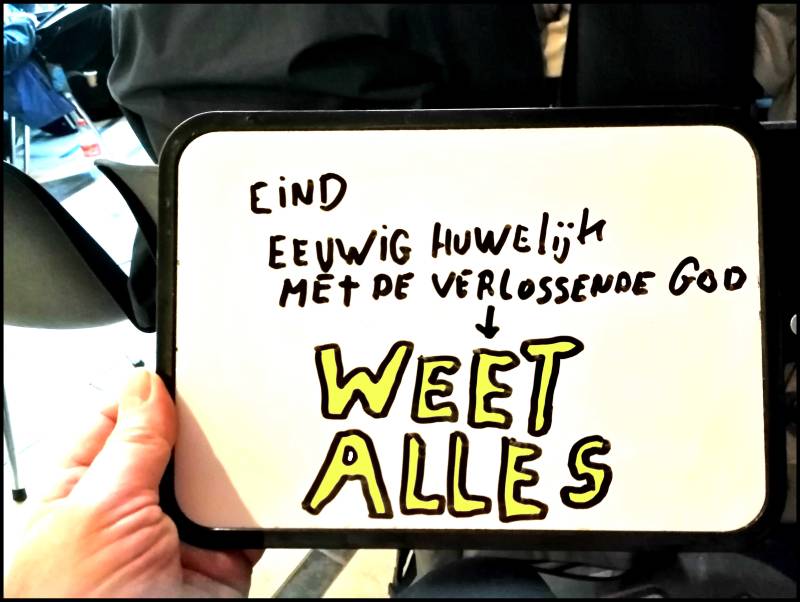 EiND
EEUWiG HUWElijk
MET DE VERLOSSENDE GOD
↓
WEET
ALLES